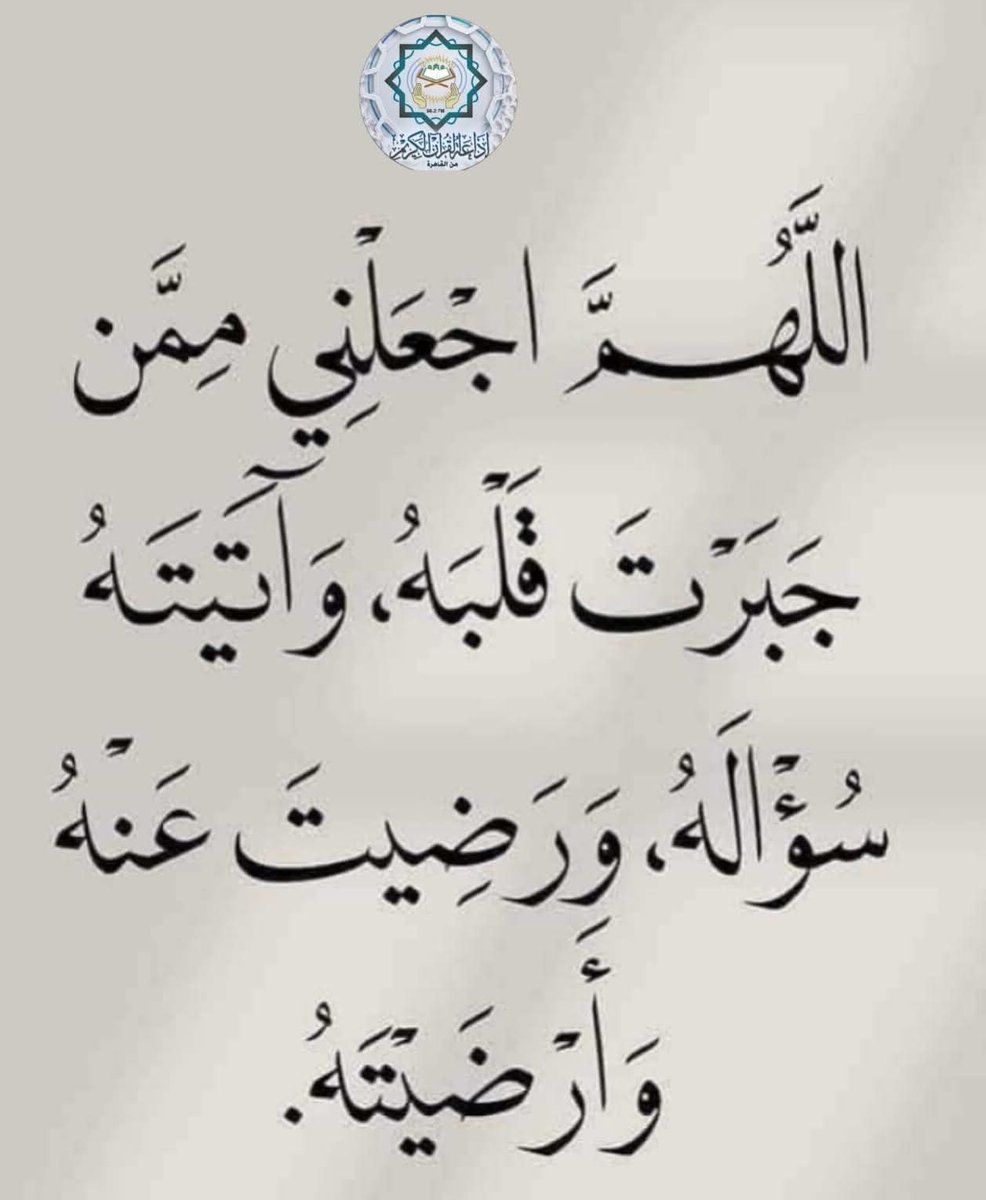 98.2 FM
إذاعة القرآن الكريم
من القاهرة
اللَّهُمَّ اجْعَلْنِي مِمَّن
جَبَرْتَ قَلْبَهُ، وَآتَيتَهُ
سُؤْالَهُ، وَرَضِيتَ عَنْهُ
وَأَرْضَيْتَهُ.